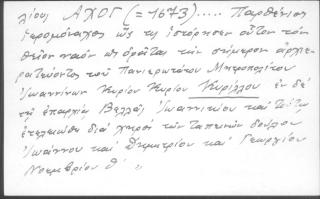 λίους ΑΧΟΓ (= 1673) ..... Παρθένιος
ἱερομόναχος ὡς τις ἱστόρησεν οὗτον τὸν
θεῖον ναὸν ὡς ὁρᾶται τὴν σήμερον ἀρχιε-
ρατεύοντος τοῦ Πανιερωτάτου Μητροπολίτου
Ἰωαννίνων Κυρίου Κυρίου Κυρίλλου ἐν δὲ
τῇ ἐπαρχίᾳ Βελλᾶς Ἰωαννικίου καὶ
ἐτελειώθη διὰ χειρὸς τῶν ταπεινῶν δούλων
Ἰωάννου καὶ Δημητρίου καὶ Γεωργίου
Νοεμβρίου θ' "